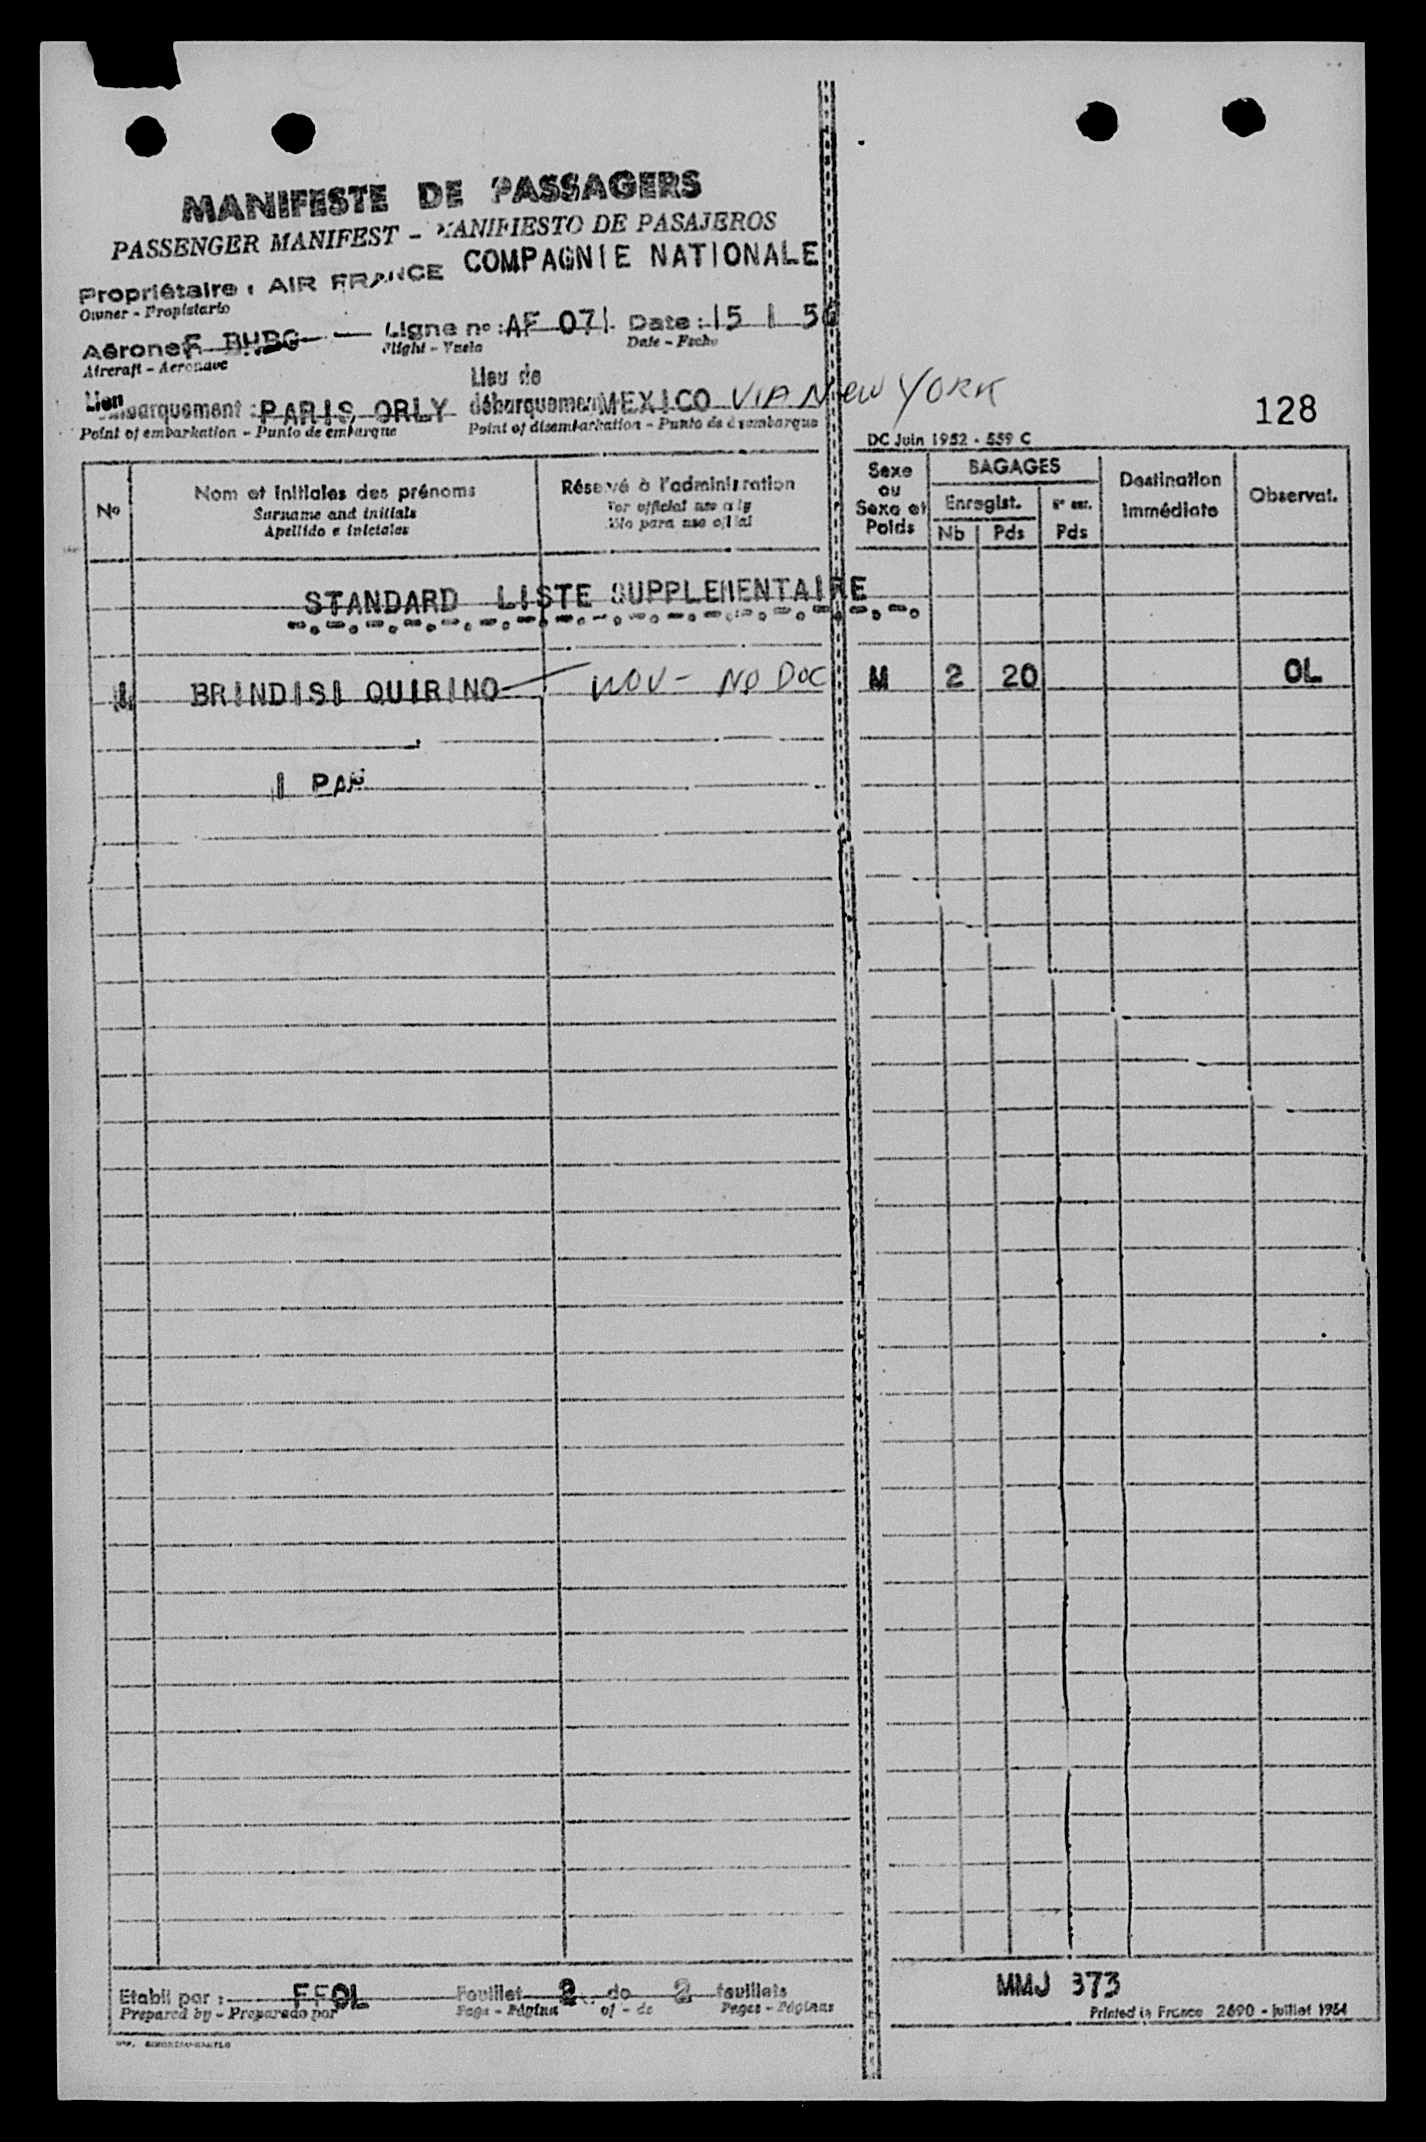 MANIFESTE DE PASSAGERS
PASSENGER MANIFEST - MANIFIESTO DE PASAJEROS
Propriétaire : AIR FRANCE COMPAGNIE NATIONALE
Owner - Propietario
Aéronef F BHBG Ligne nº : AF 071 Date : 15 1 56
Aircraft - Aeronave Flight - Date - Fecha
Lieu de
embarquement : PARIS ORLY débarquement MEXICO VIA NEW YORK
Point of embarkation - Punto de embarque Point of disembarkation - Punto de desembarque
128
DC Juin 1952 - 559 C
Nº Nom et initiales des prénoms Réservé à l'administration Sexe ou Sexe et Poids BAGAGES Destination immédiate Observat.
Surname and initials For official use only Enregist.
Apellido e iniciales para uso oficial Nb Pds Pds
STANDARD LISTE SUPPLEMENTAIRE
1 BRINDISI QUIRINO NOV - NO DOC M 2 20 OL
1 PAP
Etabli par : FFOL Feuillet 2 de 2 feuillets MMJ 373
Prepared by - Preparado por Page - Página of - de Pages - Páginas
Printed in France 2690 - juillet 1954